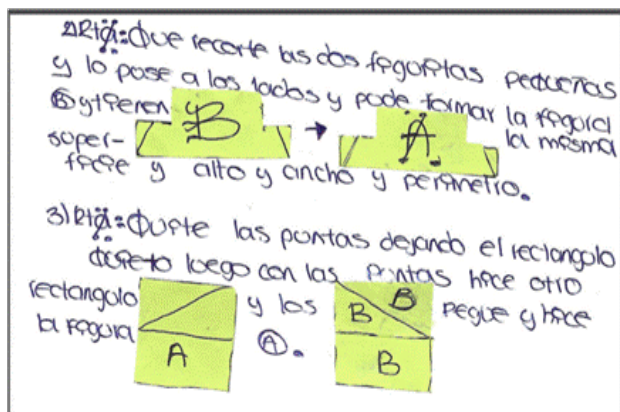 2) Rta: Que recorte las dos figuritas pequeñas
y lo pase a los lados y pode formar la figura
B y tienen B → A la misma
super-
ficie y alto y ancho y perimetro.
3) Rta: Quite las puntas dejando el rectangulo
luego con las puntas hice otro
rectangulo y los B B pegue y hice
la figura A A. B